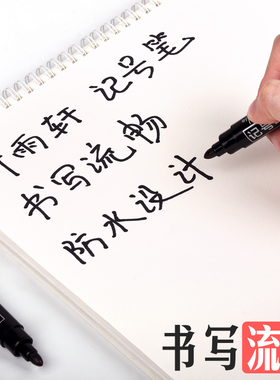 雨轩 记号笔
书写流畅
防水设计
记号
书写流